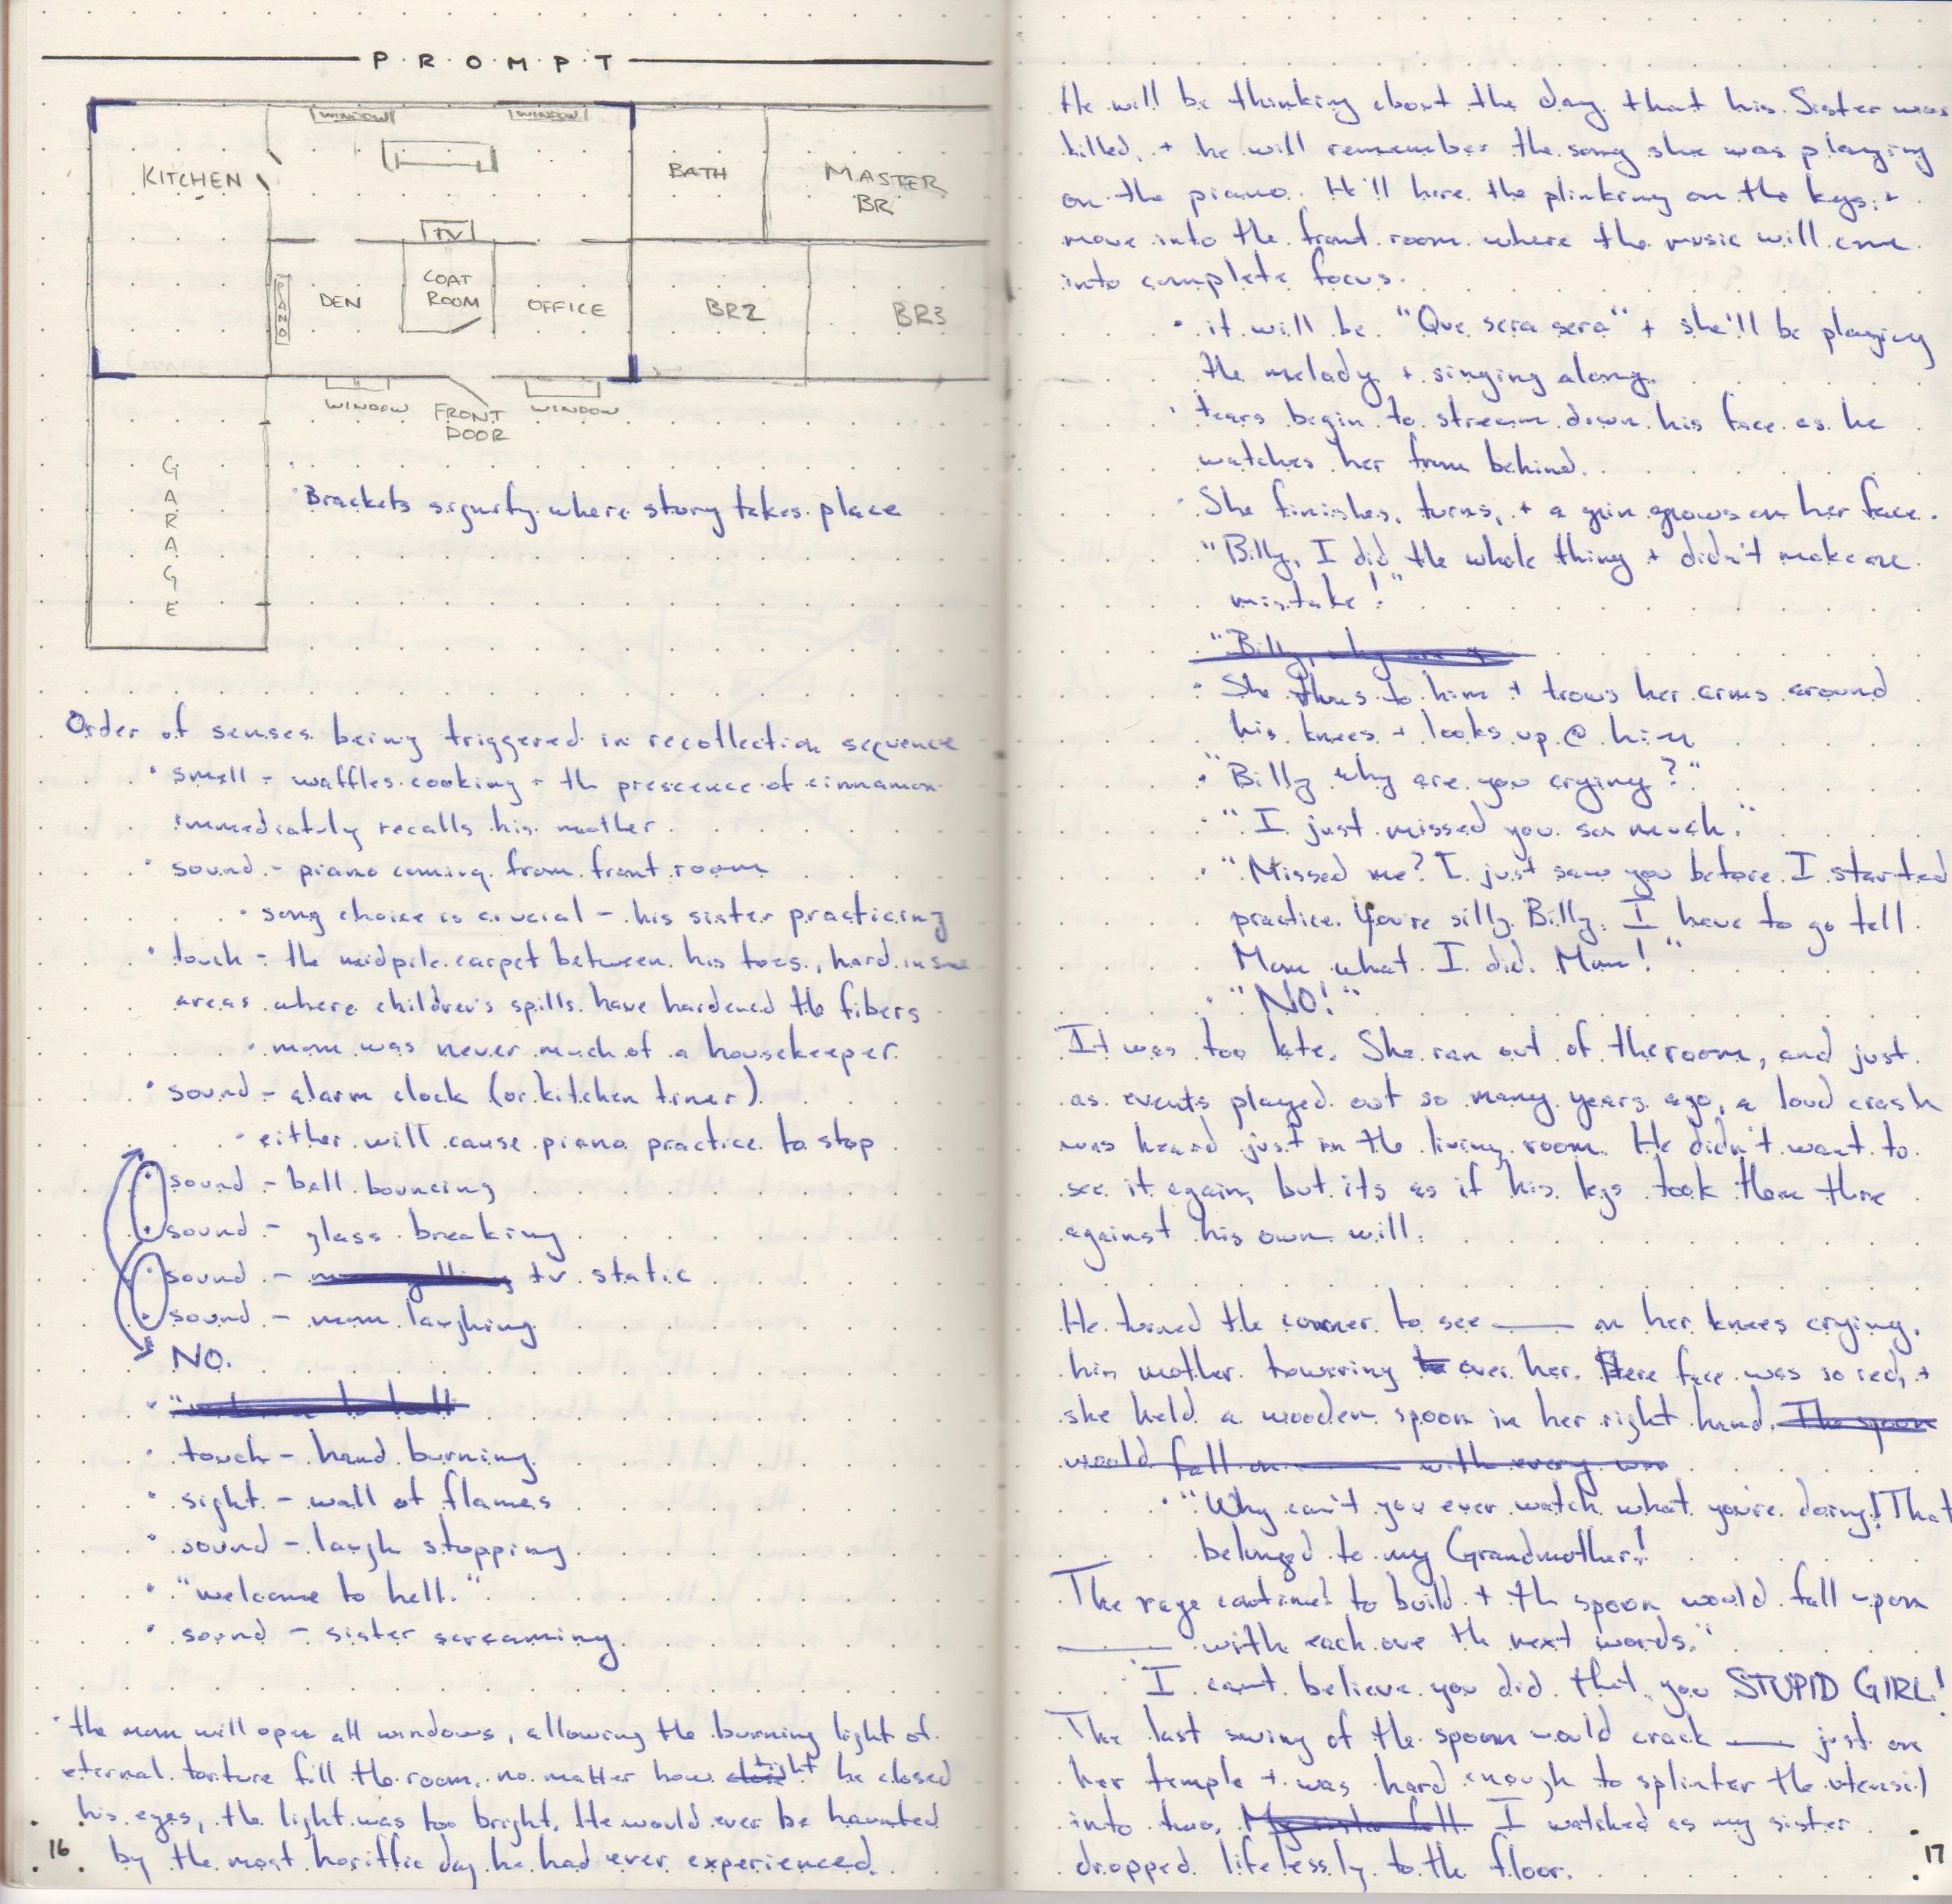 PROMPT
WINDOW
WINDOW
KITCHEN
BATH
MASTER
BR
TV
PIANO
DEN
COAT
ROOM
OFFICE
BR2
BR3
WINDOW
FRONT
DOOR
WINDOW
GARAGE
Brackets signify where story takes place
Order of senses being triggered in recollection sequence
• smell - waffles cooking - th prescence of cinnamon
immediately recalls his mother
• sound - piano coming from front room
• song choice is crucial - his sister practicing
• touch - the midpile carpet between his toes, hard in some
areas where children's spills have hardened the fibers
• mom was never much of a housekeeper
• sound - alarm clock (or kitchen timer)
• either will cause piano practice to stop
• sound - ball bouncing
• sound - glass breaking
• sound - tv static
• sound - mom laughing
NO.
• "welcome to hell
• touch - hand burning
• sight - wall of flames
• sound - laugh stopping
• "welcome to hell."
• sound - sister screaming
• the man will open all windows, allowing the burning light of
eternal torture fill the room. no matter how tight he closed
his eyes, the light was too bright. He would ever be haunted
by the most horiffic day he had ever experienced.
16
He will be thinking about the day that his Sister was
killed, + he will remember the song she was playing
on the piano. He'll here the plinking on the keys +
move into the front room where the music will come
into complete focus.
• it will be "Que sera sera" + she'll be playing
the melady + singing along.
• tears begin to stream down his face as he
watches her from behind.
• She finishes, turns, + a grin grows on her face.
"Billy, I did the whole thing + didn't make one
mistake!"
"Billy, why are y
• She to him + trows her arms around
his knees + looks up @ him
• "Billy why are you crying?"
• "I just missed you so much."
• "Missed me? I just saw you before I started
practice. You're silly Billy. I have to go tell
Mom what I did. Mom!"
• "NO!"
It was too late. She ran out of the room, and just
as events played out so many years ago, a loud crash
was heard just in the living room. He didn't want to
see it again, but its as if his legs took them there
against his own will.
He turned the corner to see ____ on her knees crying,
his mother towering to over her. Here face was so red, +
she held a wooden spoon in her right hand. The spoon
would fall on ____ with every
• "Why can't you ever watch what you're doing! That
belonged to my Grandmother!
The rage continued to build + th spoon would fall upon
____ with each ove th next words."
"I cant believe you did that you STUPID GIRL!
The last swing of the spoon would crack ____ just on
her temple + was hard enough to splinter the utensil
into two. My sister fell. I watched as my sister
dropped lifelessly to the floor.
17